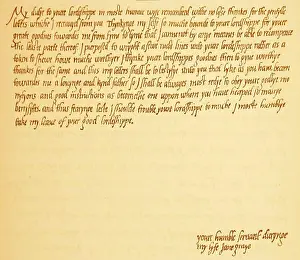 My dutye to your lordeshippe in most humble wyse remembred withe no lesse thankes for the gentyll
letters which I receavyd from you Thynkynge my selfe so muche bounde to your lordshippe for your
great goodnes towardes me from tyme to tyme that I cannot by anye meanes be able to recompence
the least parte thereof, I purposed to wryght a few rude lines unto your lordshippe rather as a
token to shewe howe muche worthyer I thynke your lordshippes goodnes then to gyve worthye
thankes for the same and thes my letters shall be to testyfe unto you that lyke as you have becom
towardes me a lovynge and kynd father so I shall be alwayes most redye to obey your godlye mo
nycions and good instructions as becometh one uppon whom you have heaped so manye
benyfytes. and thus fearynge leste I shoulde trouble your lordshippe to muche I moste humblye
take my leave of your good lordshyppe
your humble servant durynge
my lyfe jane graye